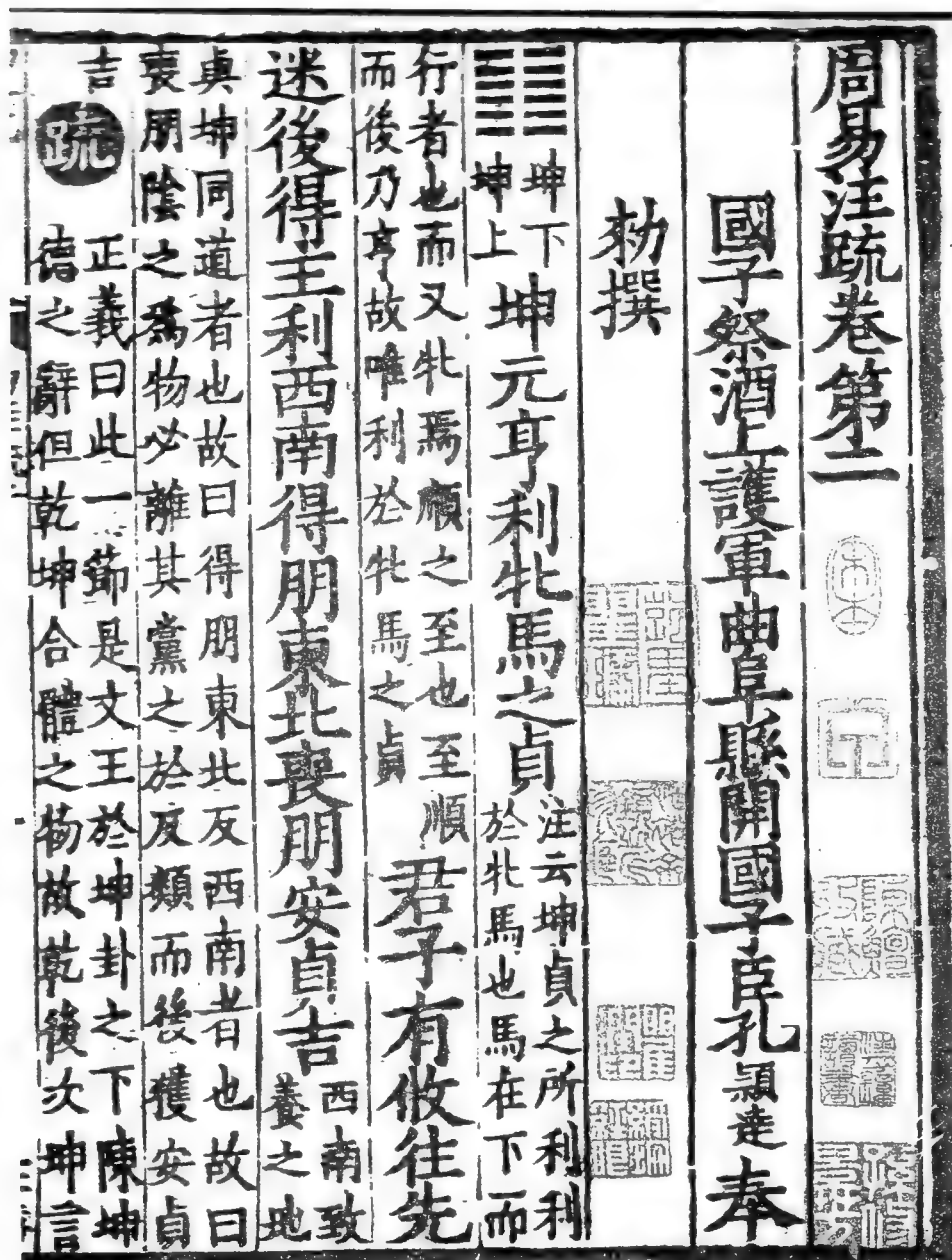 周易注疏卷第二
宋本
國子祭酒上護軍曲阜縣開國子臣孔穎達奉
勑撰
䷁
坤下
坤上
坤元亨利牝馬之貞
注云坤貞之所利利
於牝馬也馬在下而
行者也而又牝焉順之至也至順
而後乃亨故唯利於牝馬之貞
君子有攸往先
迷後得主利西南得朋東北喪朋安貞吉
西南致
養之地
與坤同道者也故曰得朋東北反西南者也故曰
喪朋陰之爲物必離其黨之於反類而後獲安貞
吉
疏
正義曰此一節是文王於坤卦之下陳坤
德之辭但乾坤合體之物故乾後次坤言